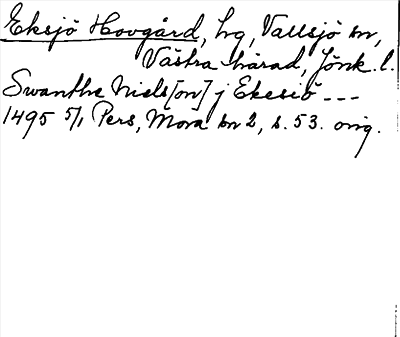 Eksjö Hovgård, hg, Vallsjö sn,
Västra härad, Jönk. l.
Swanthe Niels[on] j Ekesiö ---
1495 5/1 Pers, Mora sn 2, s. 53. orig.